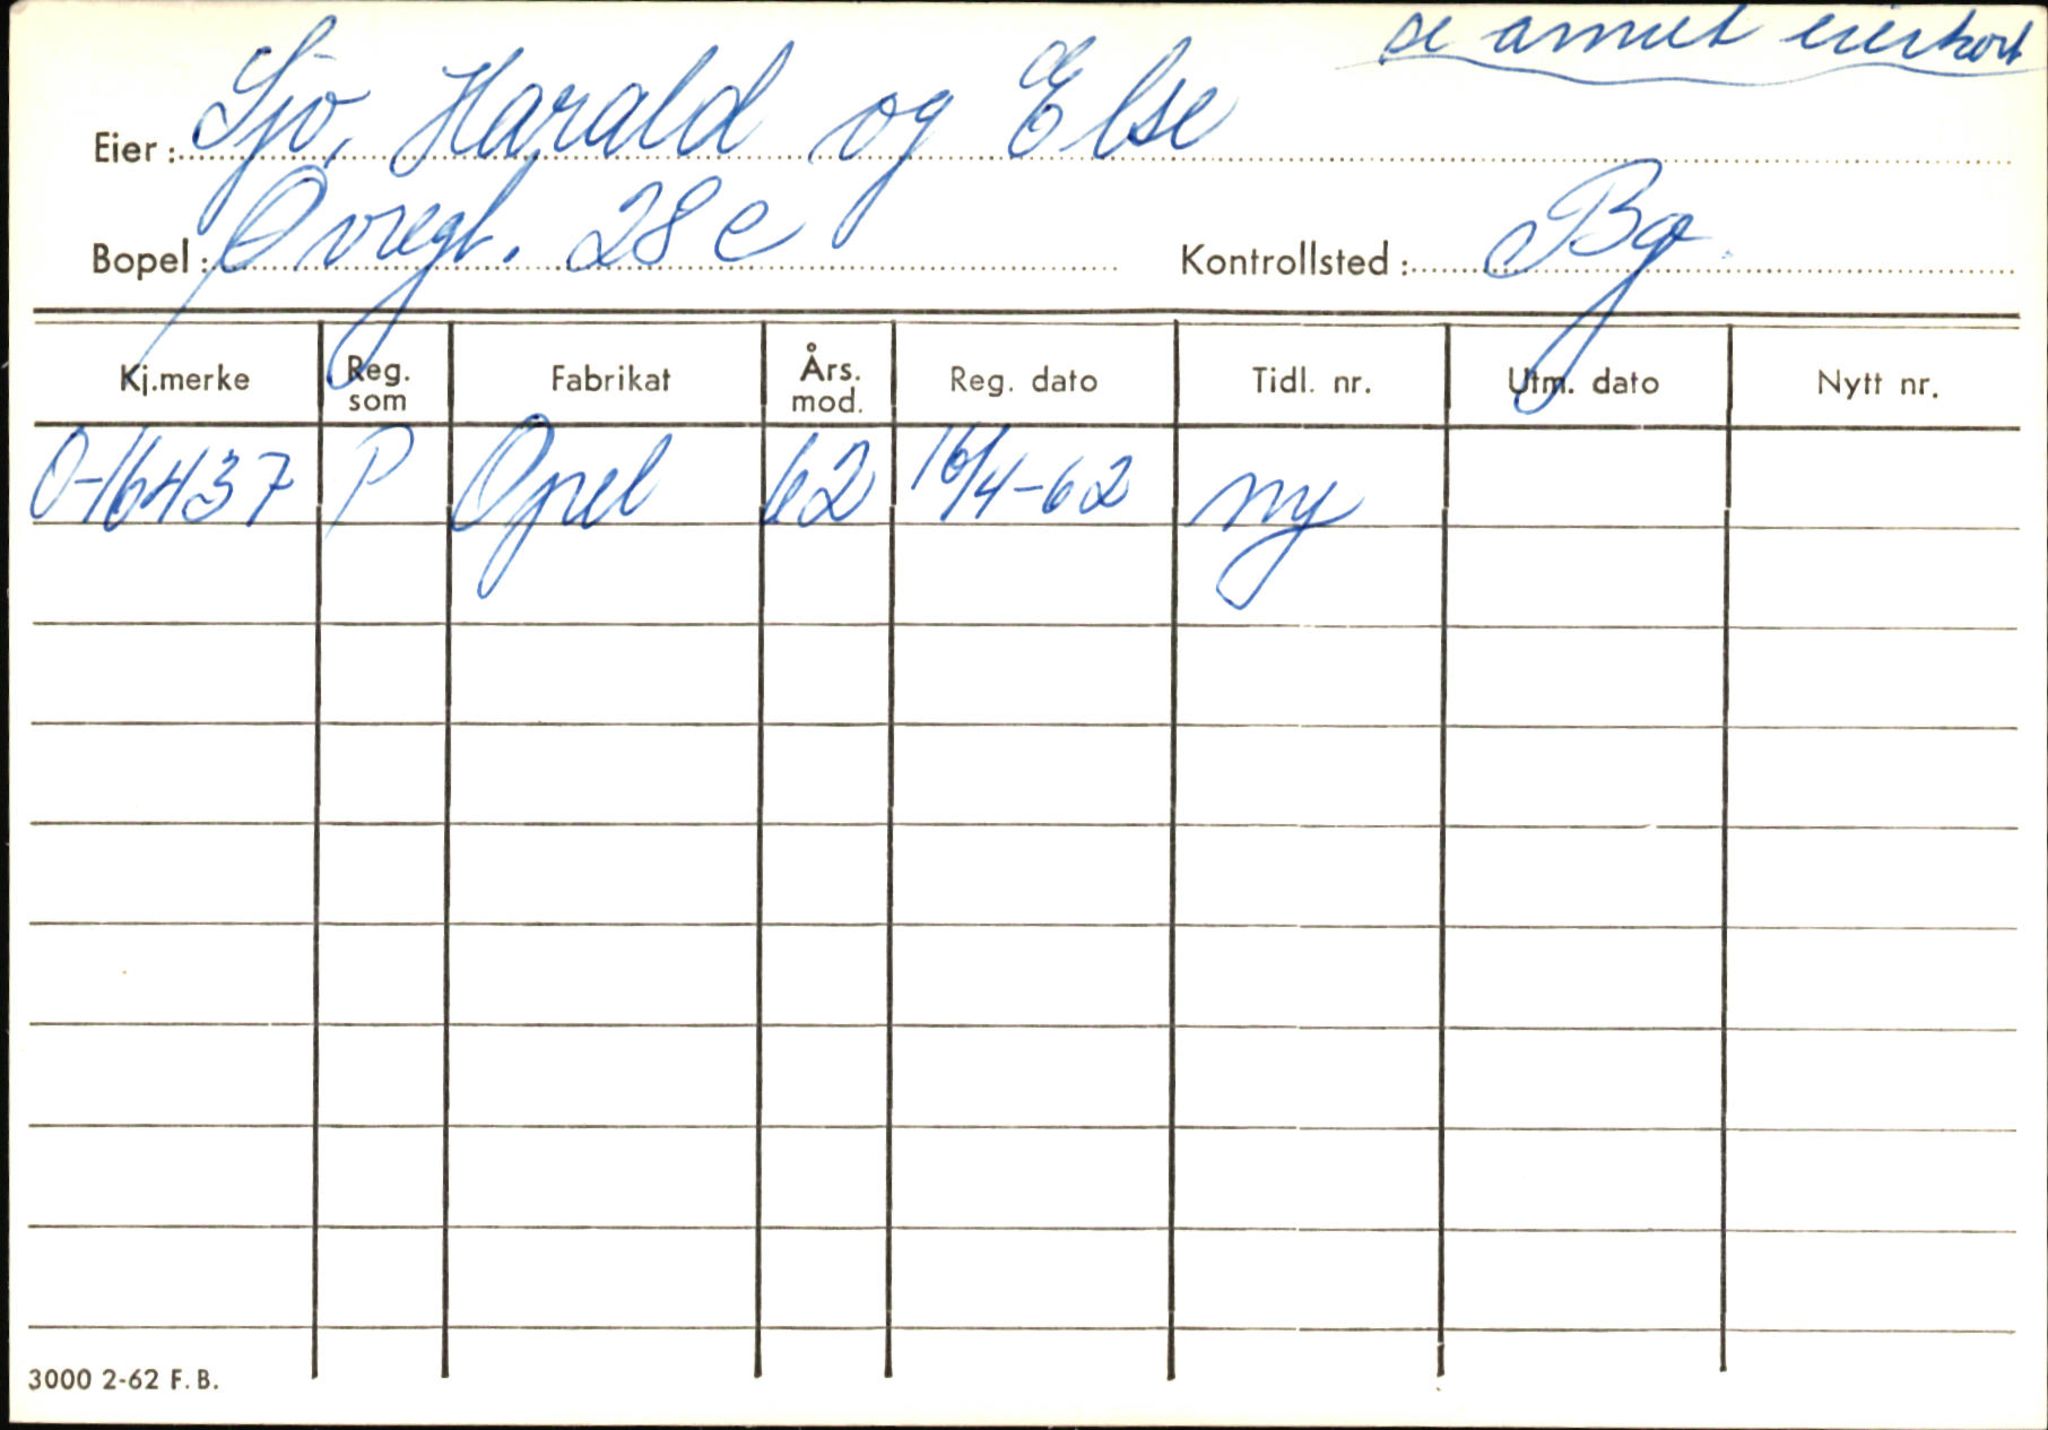 se annet eierkort
Eier: Sjø, Harald og Else
Bopel: Øvregt. 28 c Kontrollsted: Bg.
Kj.merke Reg. som Fabrikat Års. mod. Reg. dato Tidl. nr. Utm. dato Nytt nr.
O-16437 P Opel 62 16/4-62 ny
3000 2-62 F.B.